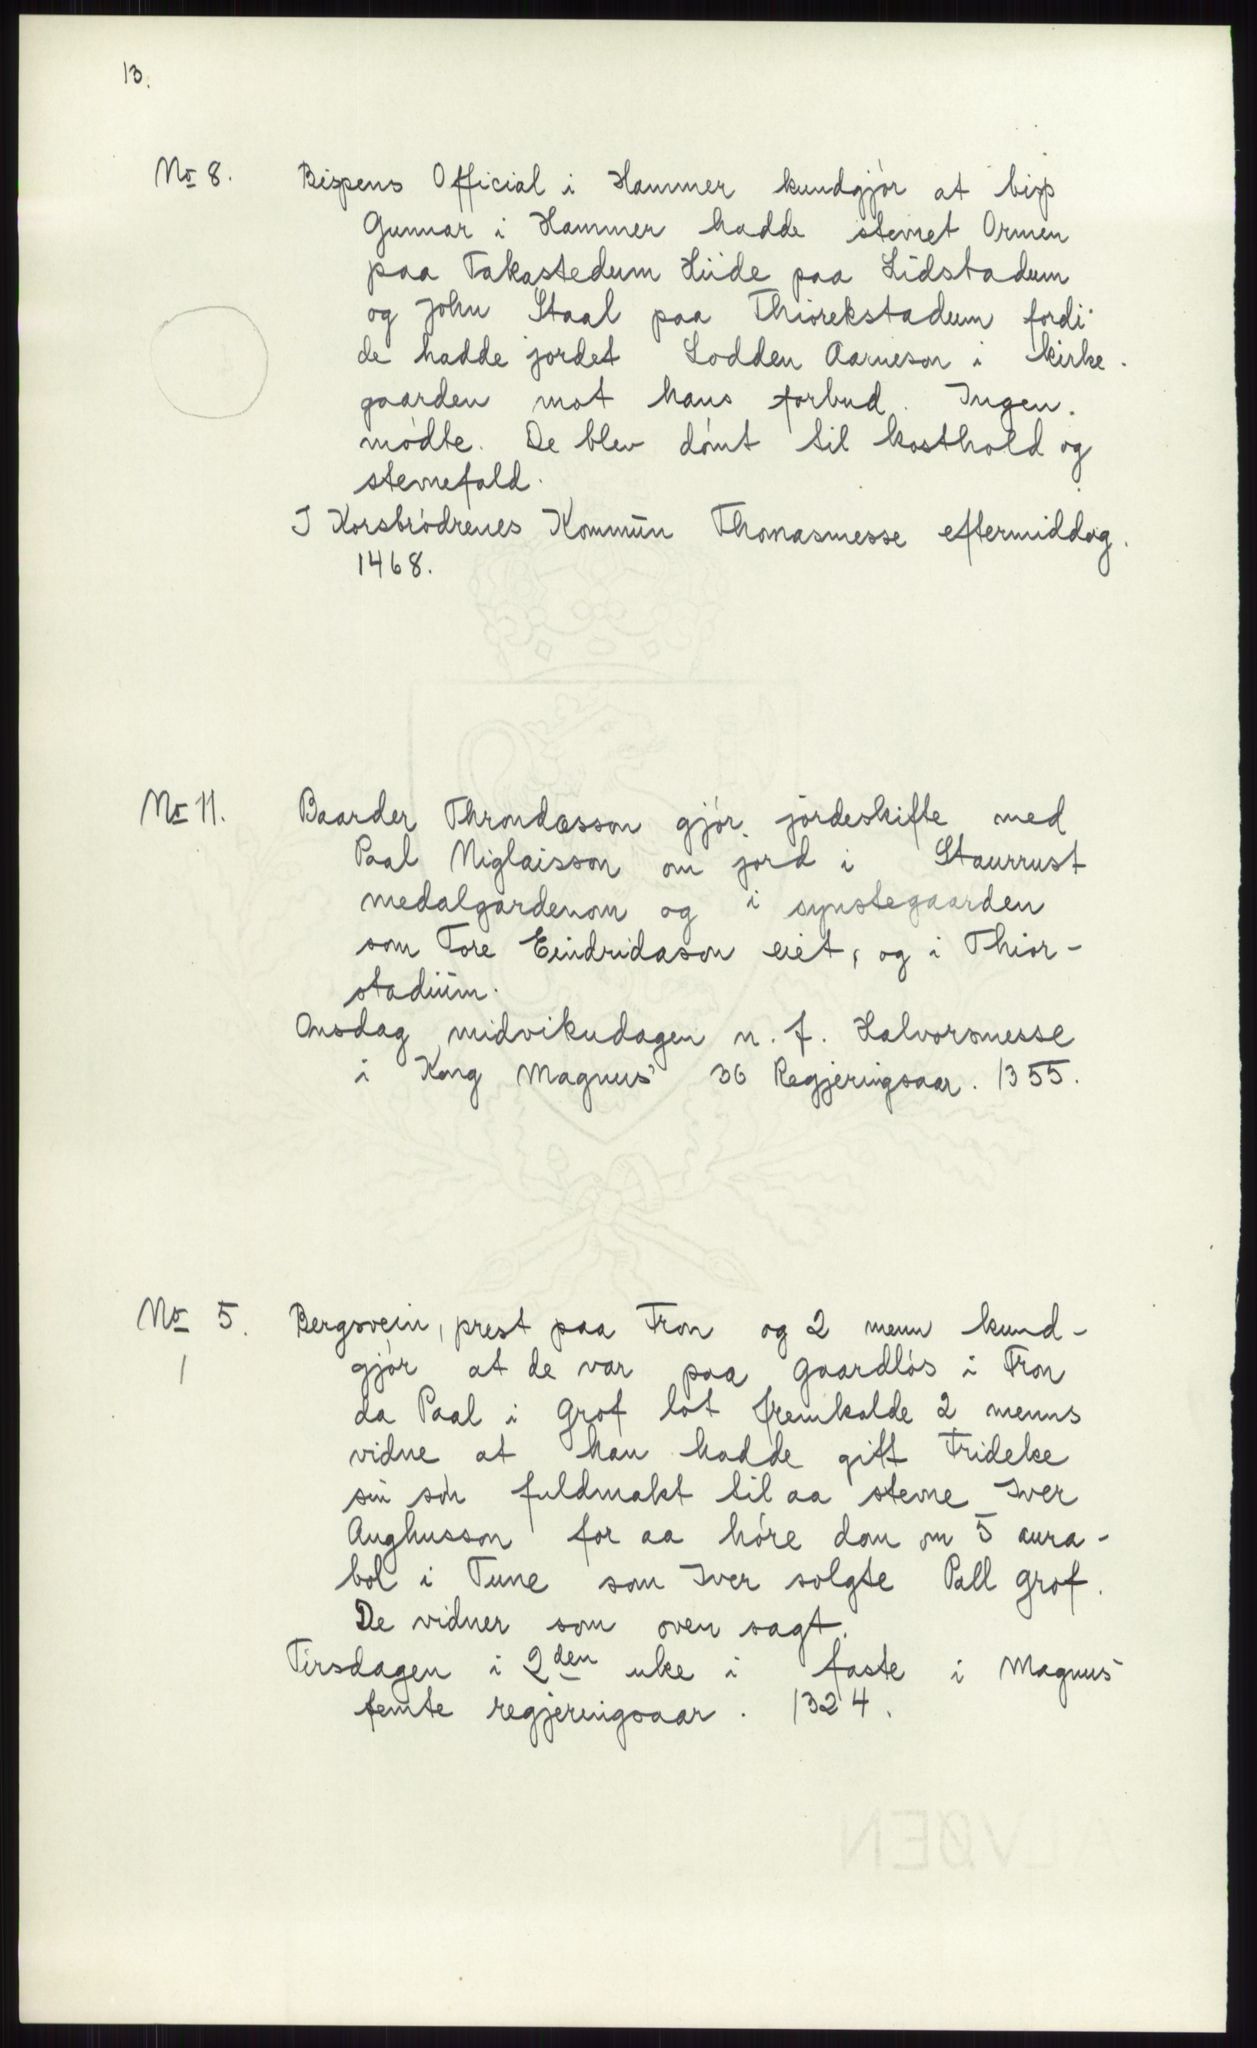 13.
No 8. Bispens Official i Hammer kundgjór at bisp
Gunnar i Hammer hadde stevnet Ormen
paa Takastedum Hiide paa Lidstadum
og John Staal paa Thiorekstadum fordi
de hadde jordet Lodden Aarneson i kirke-
gaarden mot hans forbud. Ingen
módte. De blev dómt til kosthold og
stevnefald.
I Korsbródrenes Kommūn Thomasmesse eftermiddag.
1468.
No 11. Baarder Throndæsson gjór jordeskifte med
Paal Niglaisson om jord i Staurrust
medalgardenom og i synstegaarden
som Tore Eindridason eiet, og i Thior-
stadiūm.
Onsdag midvikudagen n. f. Halvorsmesse
i Kong Magnus' 36 Regjeringsaar. 1355.
No 5. Bergsvein, prest paa Fron og 2 menn kund-
1 gjór at de var paa Gaardlós i Fron
da Paal i Grof lot fremkalde 2 menns
vidne at han hadde gitt Frideke
sin són fuldmakt til aa stevne Iver
Aughusson for aa hóre dom om 5 aura-
bol i Tune som Iver solgte Pall Grof.
De vidner som oven sagt.
Tirsdagen i 2den uke i faste i Magnus
femte regjeringsaar. 1324.
ALVØEN